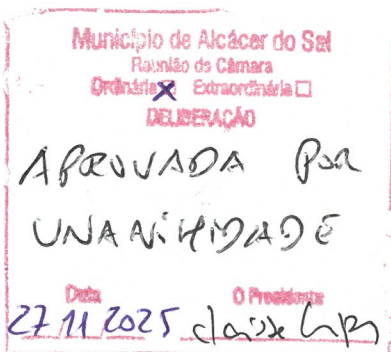 Município de Alcácer do Sal
Reunião de Câmara
Ordinária X Extraordinária ☐
DELIBERAÇÃO
APROVADA POR
UNANIMIDADE
Data O Presidente
27/11/2025